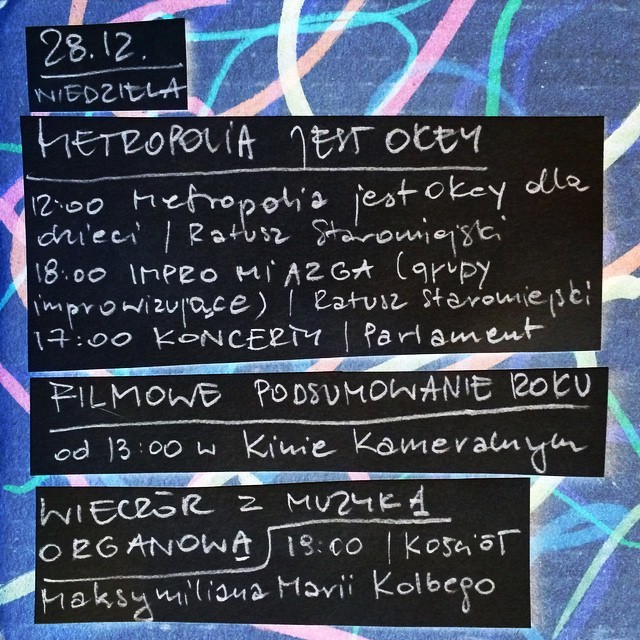 28.12.
NIEDZIELA
METROPOLIA JEST OKEY
12:00 Metropolia jest okey dla
dzieci | Ratusz Staromiejski
18:00 IMPRO MIAZGA (grupy
improwizujące) | Ratusz Staromiejski
17:00 KONCERTY | Parlament
FILMOWE PODSUMOWANIE ROKU
od 13:00 w Kinie Kameralnym
WIECZÓR Z MUZYKĄ
ORGANOWĄ 19:00 | Kościół
Maksymiliana Marii Kolbego